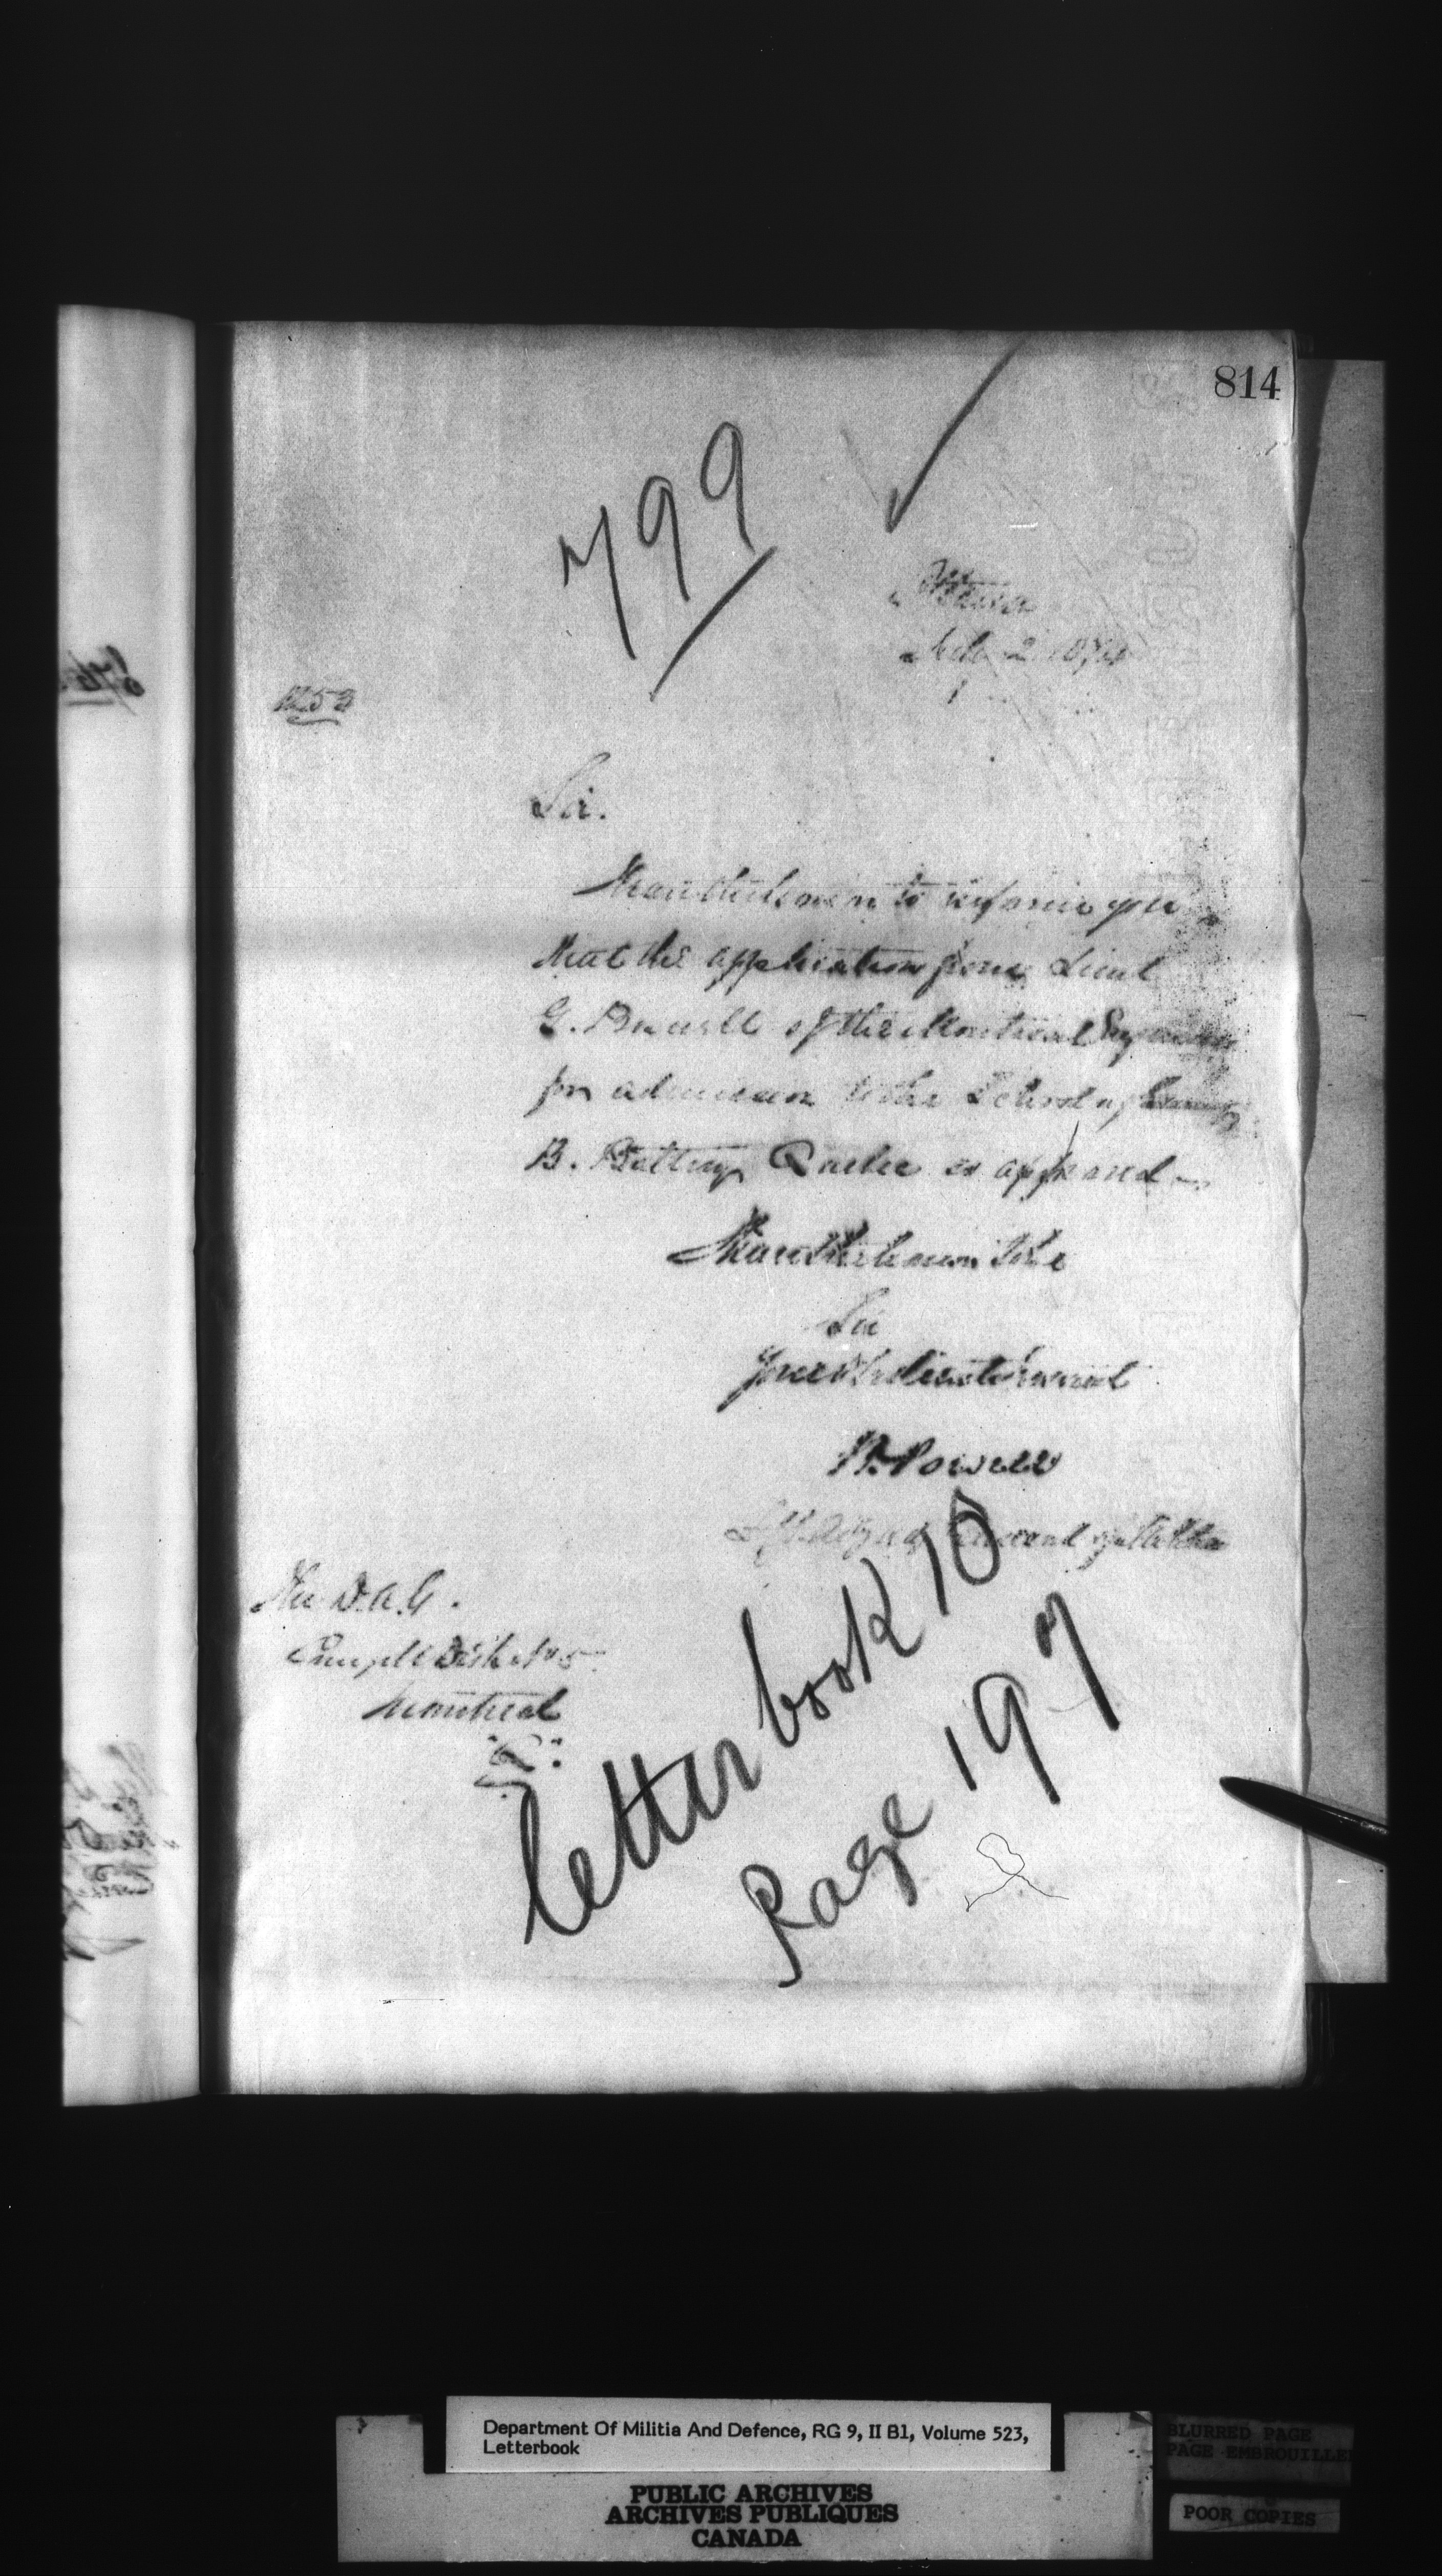 814
799
Ottawa
Feby 2 1874
1253
Sir.
I have the honor to inform you
that the application from Lieut
G. of the Montreal Engineers
for admission to the School of Gunnery
B. Battery Quebec is approved
I have the honor to be
Sir
Your obedient servant
W. Powell
of Militia
The D.A.G.
Comg Mil Dist No 5
Montreal
P.Q.
Letter book 10
Page 197
Department Of Militia And Defence, RG 9, II B1, Volume 523,
Letterbook
PUBLIC ARCHIVES
ARCHIVES PUBLIQUES
CANADA
BLURRED PAGE
PAGE EMBROUILLE
POOR COPIES